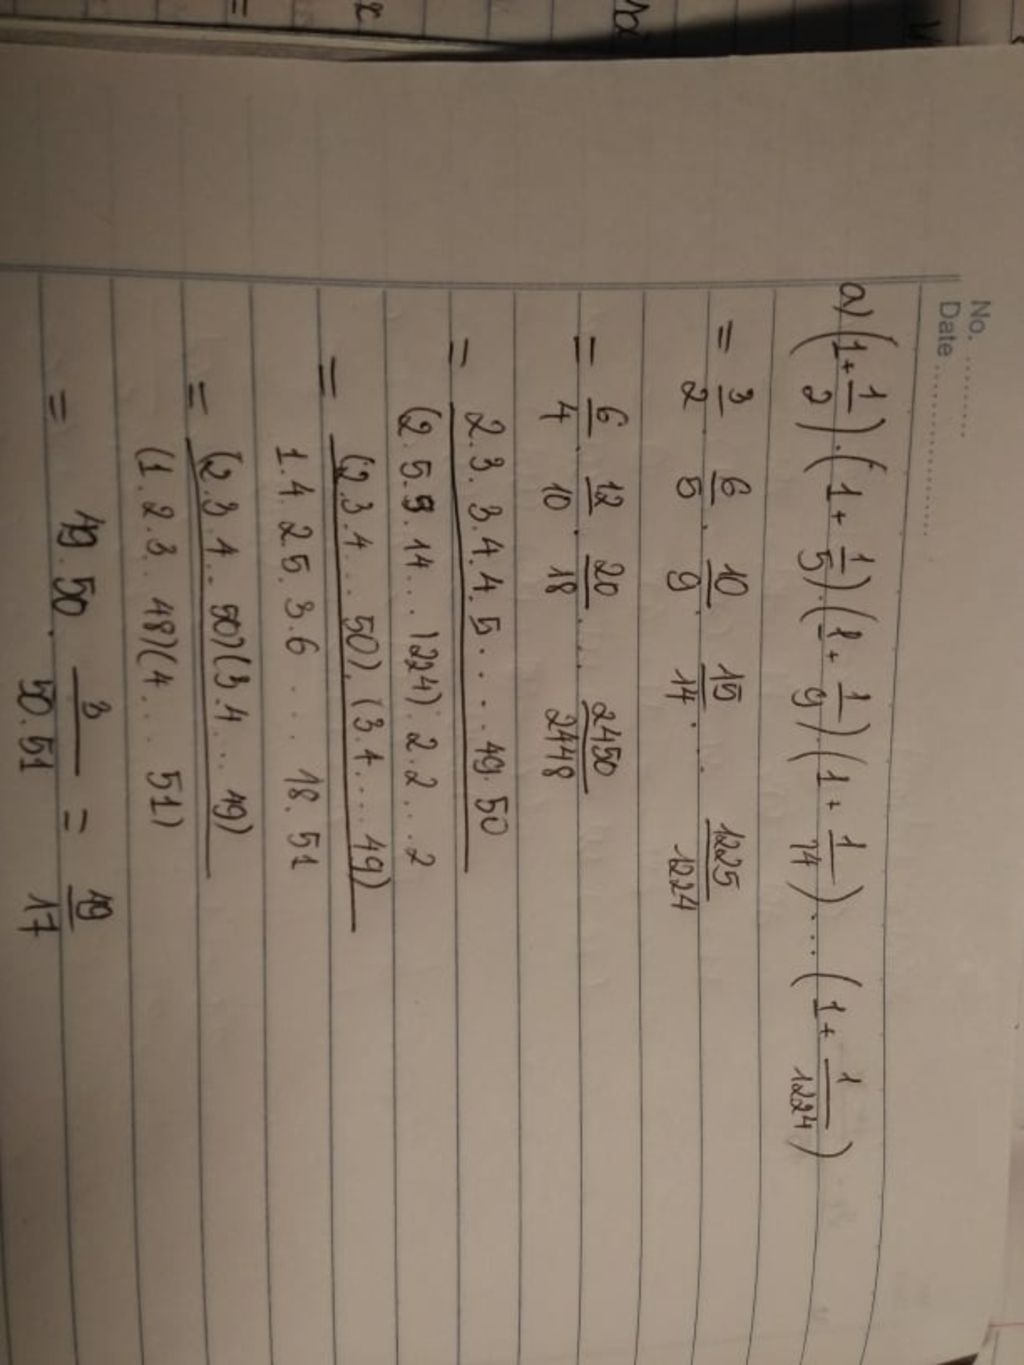 No. ............
Date ....................
a) (1+1/2).(1+1/5).(1+1/9).(1+1/14)....(1+1/1224)
= 3/2 . 6/5 . 10/9 . 15/14 ... 1225/1224
= 6/4 . 12/10 . 20/18 .... 2450/2448
= 2.3.3.4.4.5.....49.50
(2.5.9.14...1224).2.2...2
= (2.3.4...50).(3.4....49)
1.4.2.5.3.6....18.51
= (2.3.4...50)(3.4...49)
(1.2.3..48)(4...51)
= 49.50 . 3/50.51 = 49/17